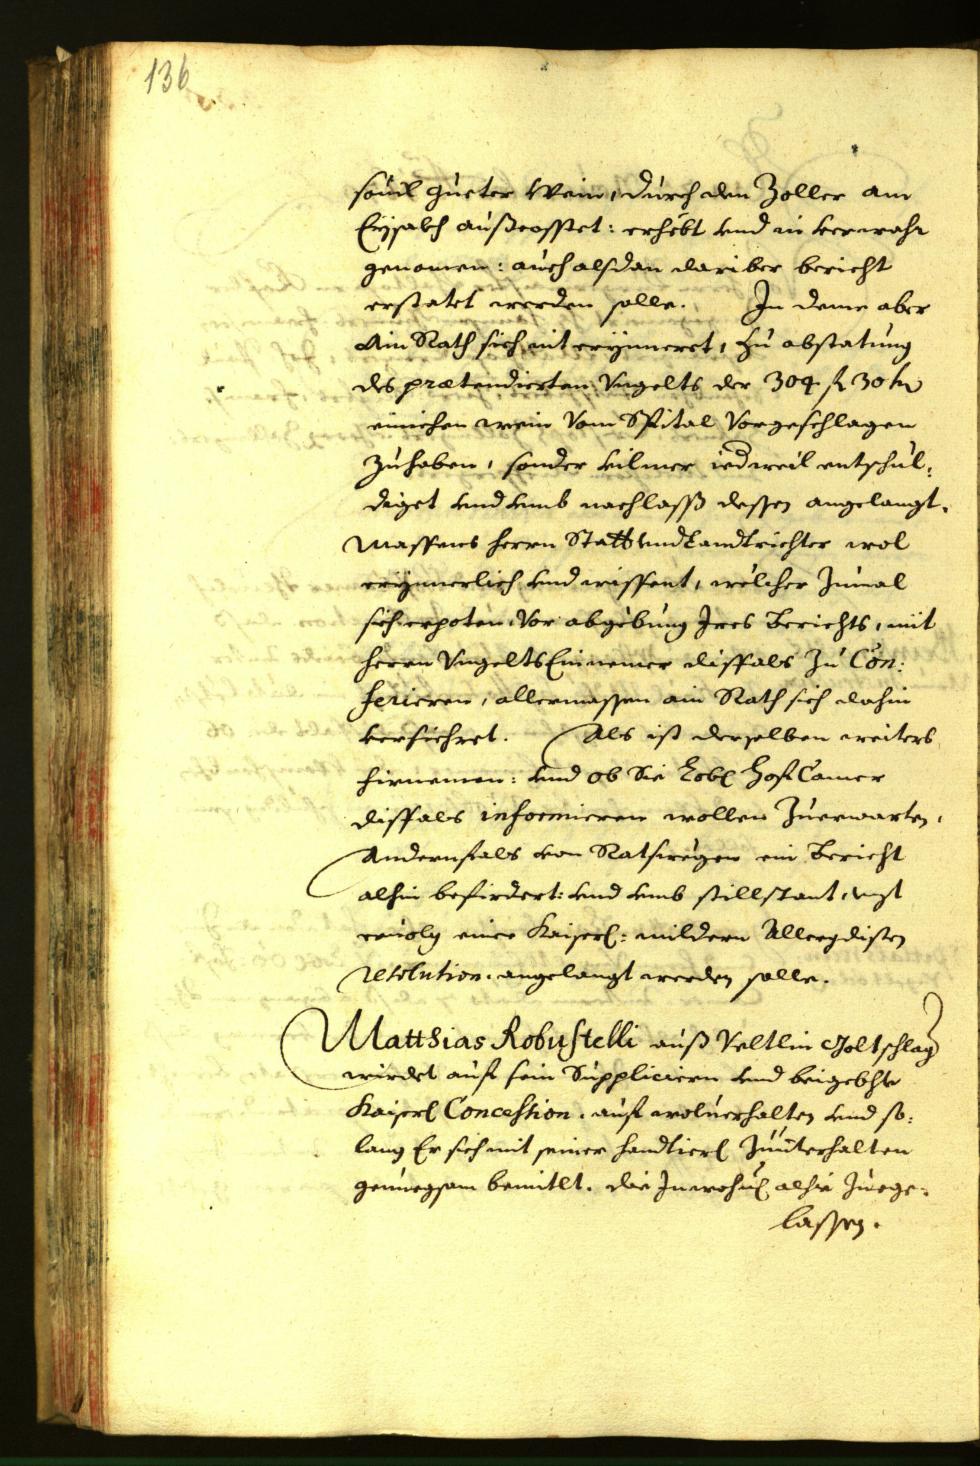 136
souil gueter Wein, durch den Zoller am
Eysakh außcosstet: erhebt und in verwahr
genomen: auch alsdan dariber bericht
erstatet werden solle. In deme aber
Ain Rath sich nit erynneret, zu abstatung
des prætendierten Ungelts der 304 f 30 kr
ainichen wein vom Spital vorgeschlagen
zuhaben, sonder vilmer iedweil entschul:
diget und umb nachlass dessen angelangt.
Massen es herrn Statt und Landtrichter wol
erynnerlich und wissent, welcher zumal
sich erpoten, vor abgebung Ires Berichts, mit
herrn Ungelts Einnemer dissfals zu Con:
ferieren, allermassen ain Rath sich dahin
versichret. Als ist derselben weiters
firnemen: und ob Sie Lobl Hof Camer
dissfals informieren wollen zuerwarten,
Andernfals von Ratswegen ein Bericht
alhin befirdert: und umb stillstant,
ervolg einer Kaiserl: mildern Allergdisten
resolution. angelangt werden solle.
Matthias Robustelli auß Veltlin Goltschlag
wirdet auf sein Suppliciern und beigebchte
Kaiserl Concession. auf wolverhalten und so:
lang Er sich mit seiner handtierl zuunterhalten
genuegsam bemitlt. die Inwohnl alhie zuege:
lassen.